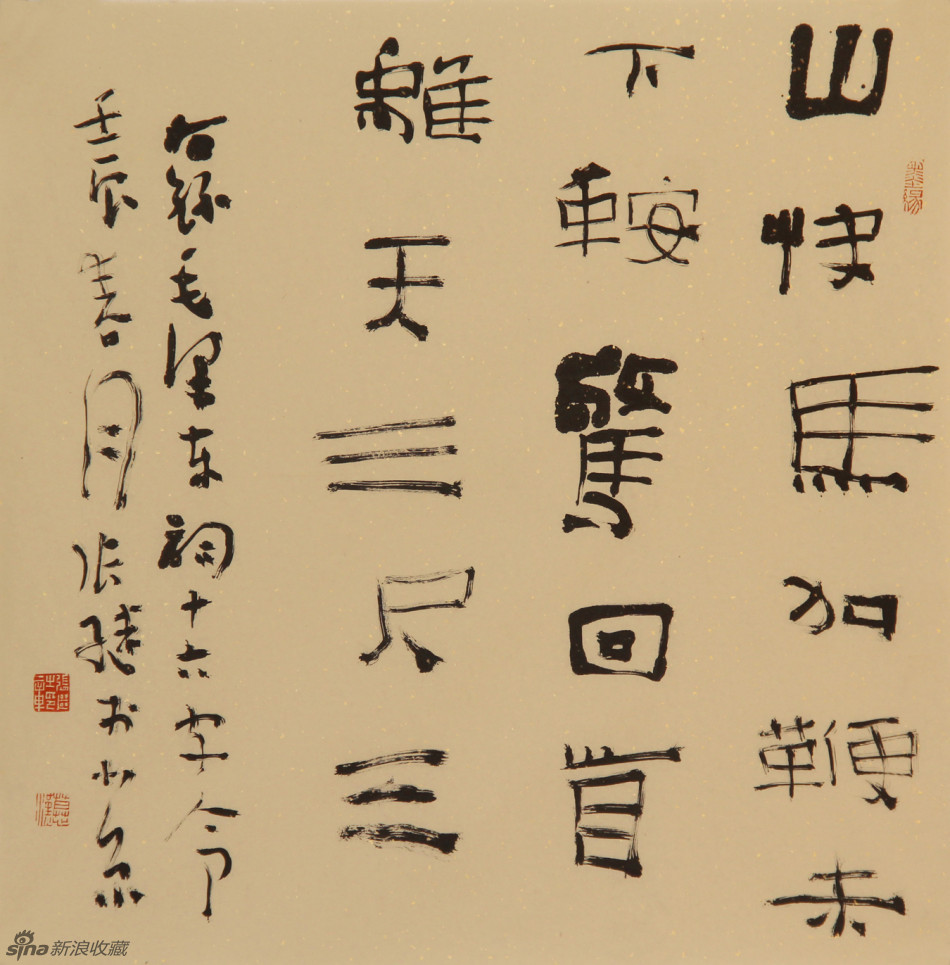 山快馬加鞭未
下鞍驚回首
離天三尺三
右錄毛澤東詞十六字令
壬辰春月張
sina新浪收藏